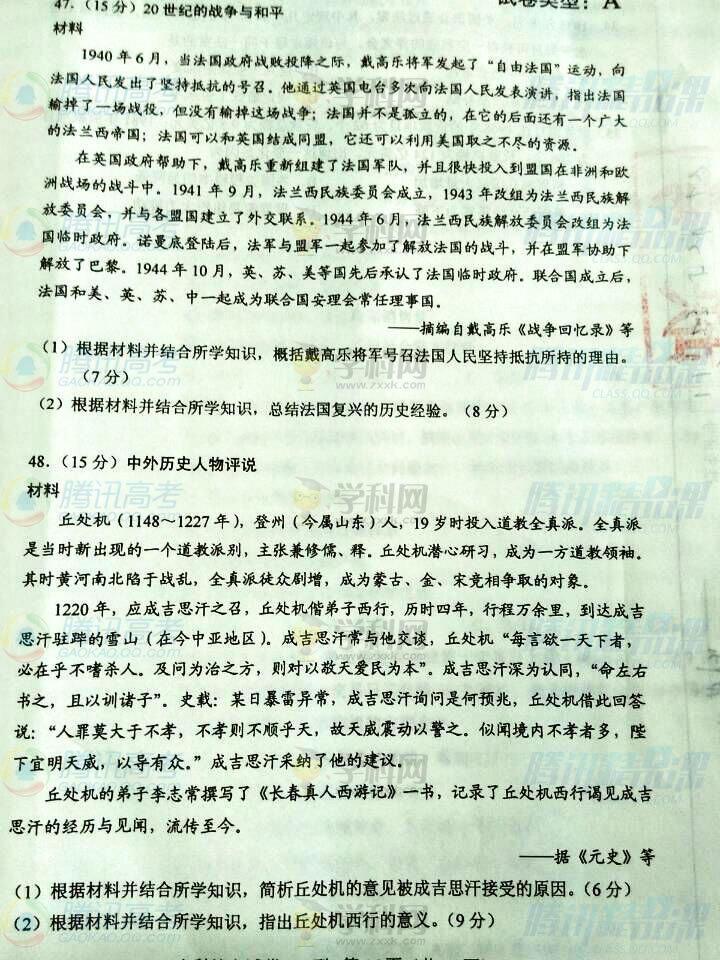 试卷类型：A
47.（15 分）20 世纪的战争与和平
材料
1940 年 6 月，当法国政府战败投降之际，戴高乐将军发起了“自由法国”运动，向
法国人民发出了坚持抵抗的号召。他通过英国电台多次向法国人民发表演讲，指出法国
输掉了一场战役，但没有输掉这场战争；法国并不是孤立的，在它的后面还有一个广大
的法兰西帝国；法国可以和英国结成同盟，它还可以利用美国取之不尽的资源。
在英国政府帮助下，戴高乐重新组建了法国军队，并且很快投入到盟国在非洲和欧
洲战场的战斗中。1941 年 9 月，法兰西民族委员会成立，1943 年改组为法兰西民族解
放委员会，并与各盟国建立了外交联系。1944 年 6 月，法兰西民族解放委员会改组为法
国临时政府。诺曼底登陆后，法军与盟军一起参加了解放法国的战斗，并在盟军协助下
解放了巴黎。1944 年 10 月，英、苏、美等国先后承认了法国临时政府。联合国成立后，
法国和美、英、苏、中一起成为联合国安理会常任理事国。
——摘编自戴高乐《战争回忆录》等
（1）根据材料并结合所学知识，概括戴高乐将军号召法国人民坚持抵抗所持的理由。
（7 分）
（2）根据材料并结合所学知识，总结法国复兴的历史经验。（8 分）
48.（15 分）中外历史人物评说
材料
丘处机（1148～1227 年），登州（今属山东）人，19 岁时投入道教全真派。全真派
是当时新出现的一个道教派别，主张兼修儒、释。丘处机潜心研习，成为一方道教领袖。
其时黄河南北陷于战乱，全真派徒众剧增，成为蒙古、金、宋竞相争取的对象。
1220 年，应成吉思汗之召，丘处机偕弟子西行，历时四年，行程万余里，到达成吉
思汗驻跸的雪山（在今中亚地区）。成吉思汗常与他交谈，丘处机“每言欲一天下者，
必在乎不嗜杀人。及问为治之方，则对以敬天爱民为本”。成吉思汗深为认同，“命左右
书之，且以训诸子”。史载：某日暴雷异常，成吉思汗询问是何预兆，丘处机借此回答
说：“人罪莫大于不孝，不孝则不顺乎天，故天威震动以警之。似闻境内不孝者多，陛
下宜明天威，以导有众。”成吉思汗采纳了他的建议。
丘处机的弟子李志常撰写了《长春真人西游记》一书，记录了丘处机西行谒见成吉
思汗的经历与见闻，流传至今。
——据《元史》等
（1）根据材料并结合所学知识，简析丘处机的意见被成吉思汗接受的原因。（6 分）
（2）根据材料并结合所学知识，指出丘处机西行的意义。（9 分）